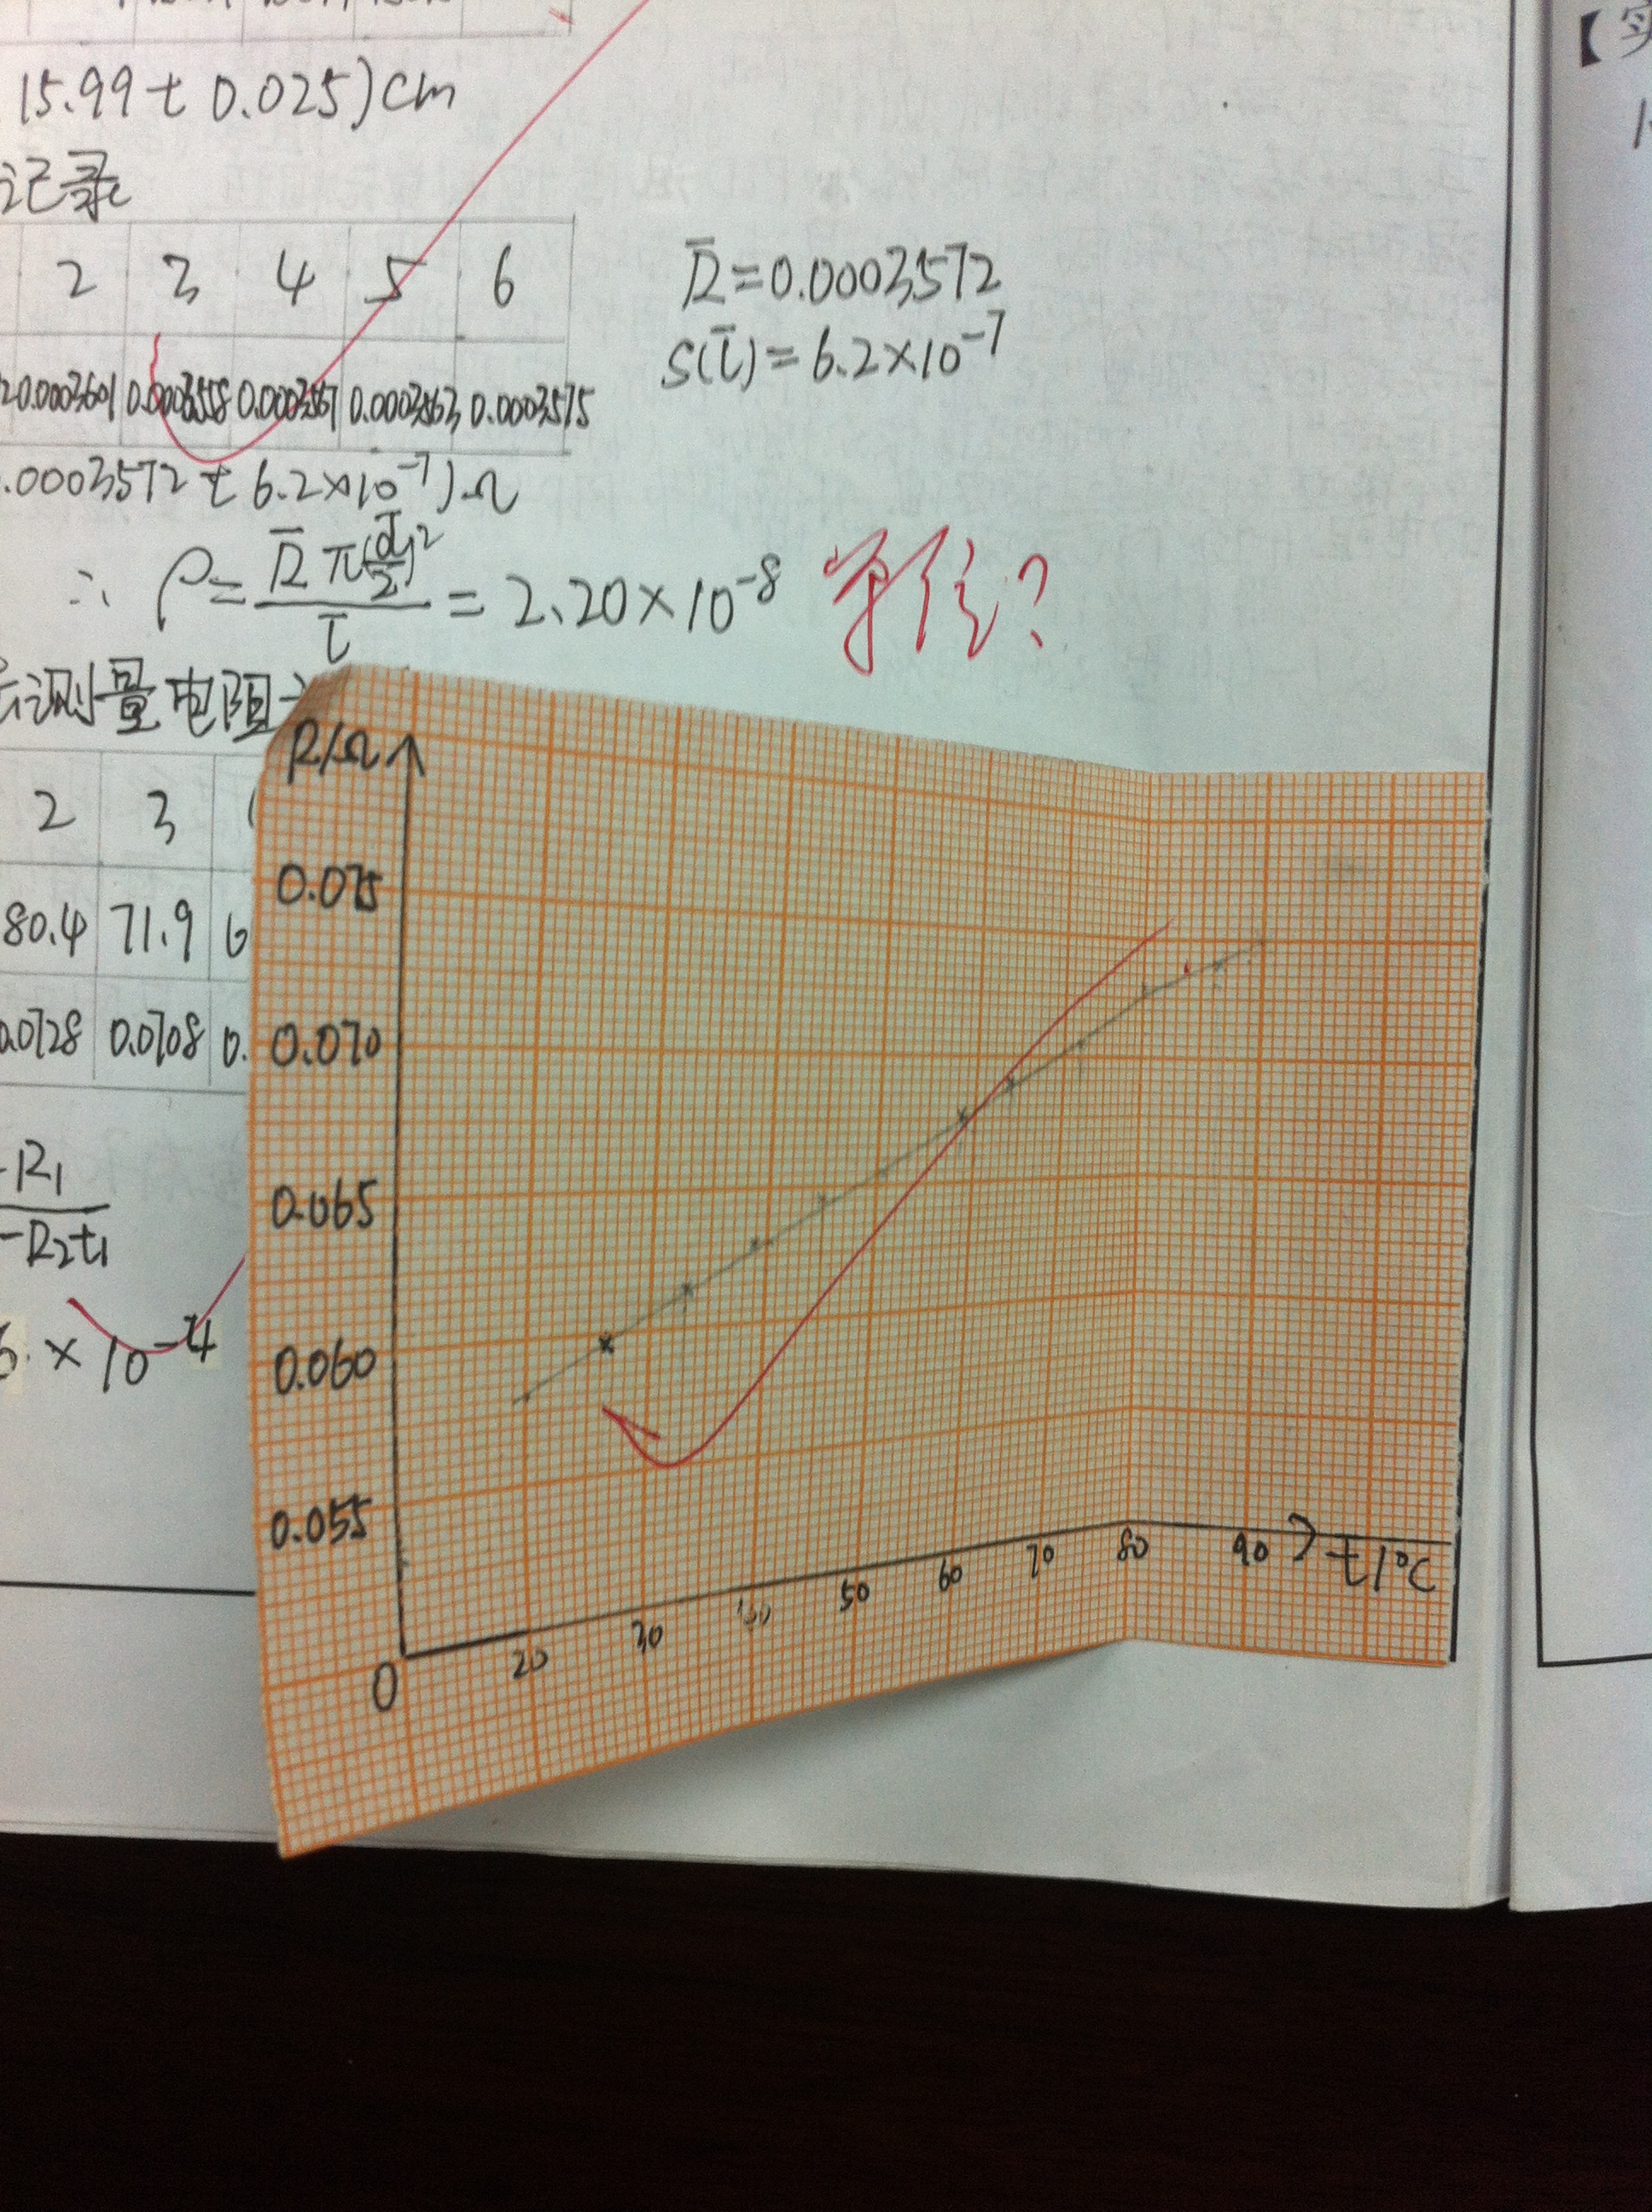 15.99 ± 0.025) cm
记录
2 3 4 5 6
0.0003601 0.0003558 0.0003567 0.0003563 0.0003575
R̄ = 0.0003572
S(l̄) = 6.2×10⁻⁷
.0003572 ± 6.2×10⁻⁷) Ω
∴ ρ = R̄ π(d̄/2)² / l̄ = 2.20×10⁻⁸ 单位?
测量电阻
2 3
80.4 71.9 6
0.0728 0.0708 0.
-R₁
-R₂t₁
6 × 10⁻⁴
R/Ω
0.075
0.070
0.065
0.060
0.055
0 20 30 40 50 60 70 80 90 t/°C
【实